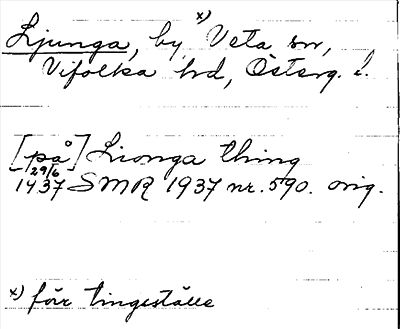 Ljunga, by x) Veta sn,
Vifolka hd, Österg. l.
[på] Lionga thing
29/6
1437 SMR 1937 nr. 590. orig.
x) förr tingställe